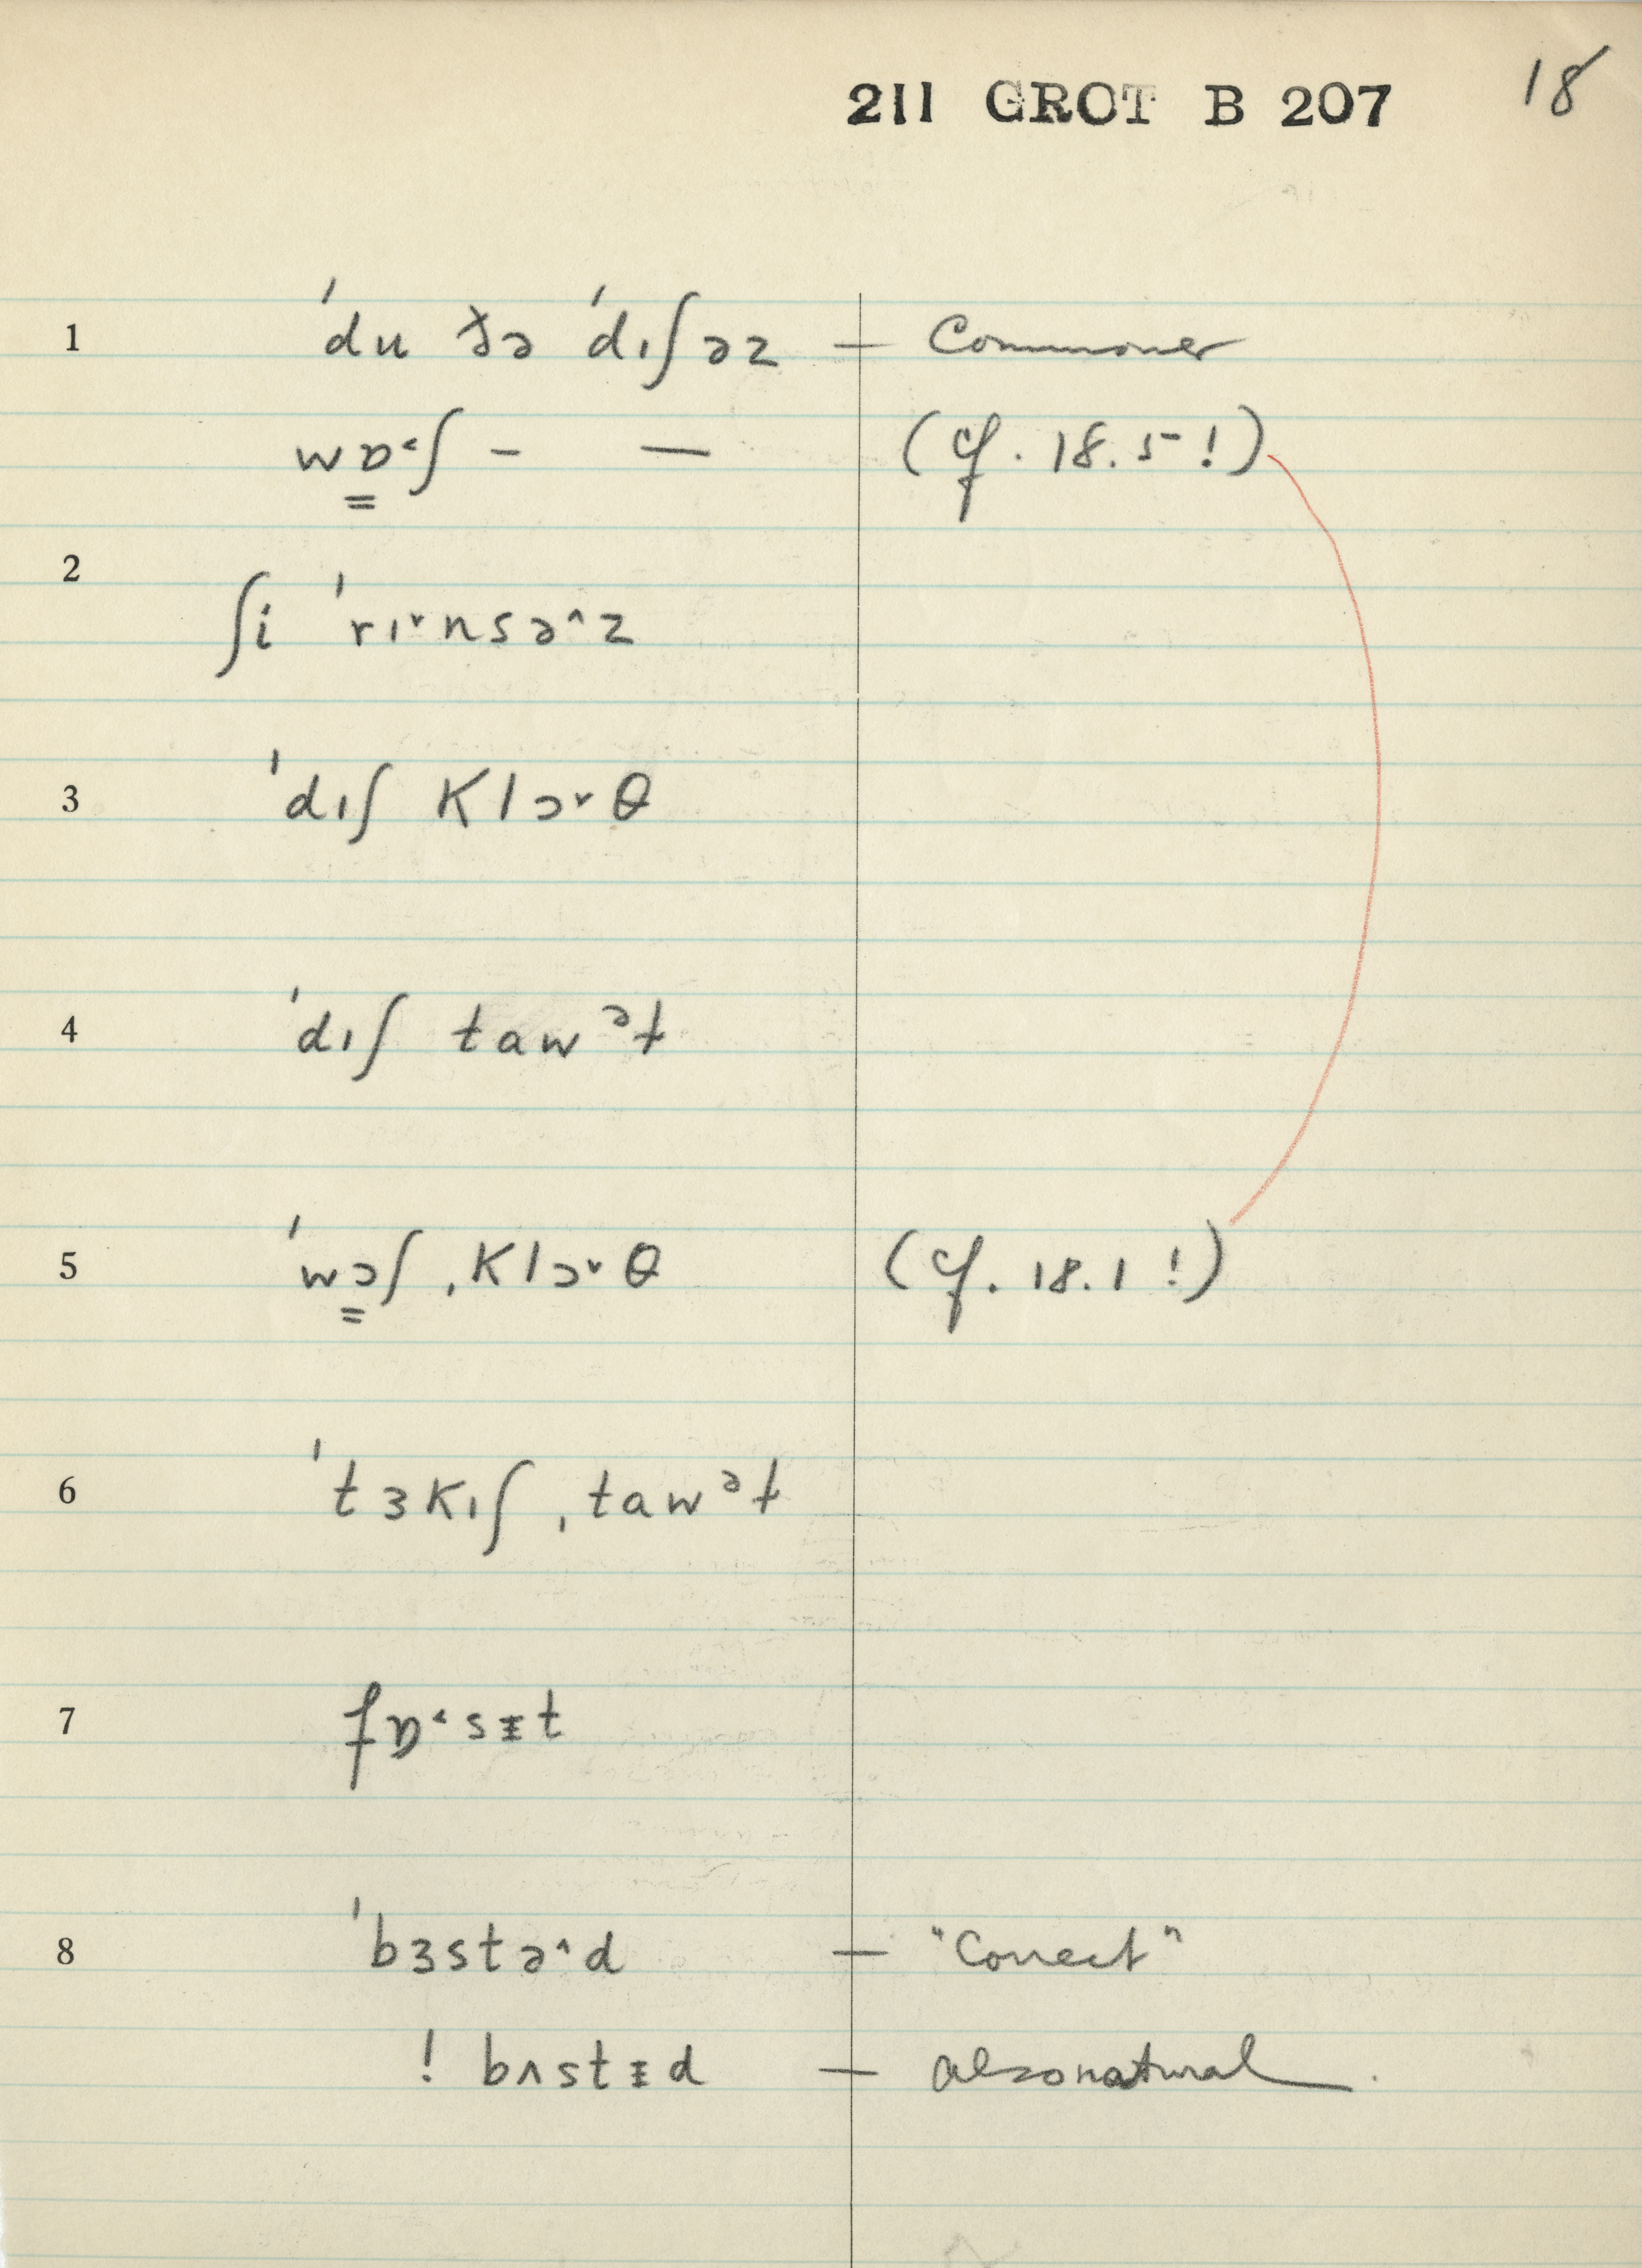 211 GROT B 207 18
1 ˈdu ðə ˈdɪʃəz — Commoner
wɒ˂ʃ - — (cf. 18.5!)
2
ʃi ˈrɪ˅nsə˄z
3 ˈdɪʃ klɔ˅θ
4 ˈdɪʃ tawᵊɫ
5 ˈwɔʃ ˌklɔ˅θ (cf. 18.1!)
6 ˈtɜkɪʃ ˌtawᵊɫ
7 fɒ˂sᵻt
8 ˈbɜstə˄d — "Correct"
! bʌstᵻd — also natural.